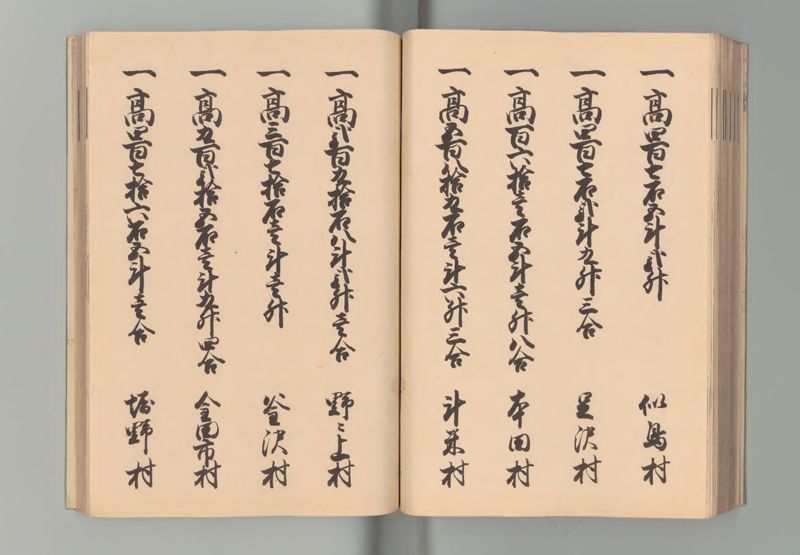 一 高四百七石五斗弐升 似鳥村
一 高四百七石弐斗九升三合 足沢村
一 高百六拾壱石五斗壱升八合 本田村
一 高五百八拾九石壱斗六升三合 斗米村
一 高弐百九拾石八斗弐升壱合 野々上村
一 高三百七拾石壱斗壱升 釜沢村
一 高九百弐拾五石壱斗九升四合 金田一村
一 高四百七拾六石五斗壱合 堀野村